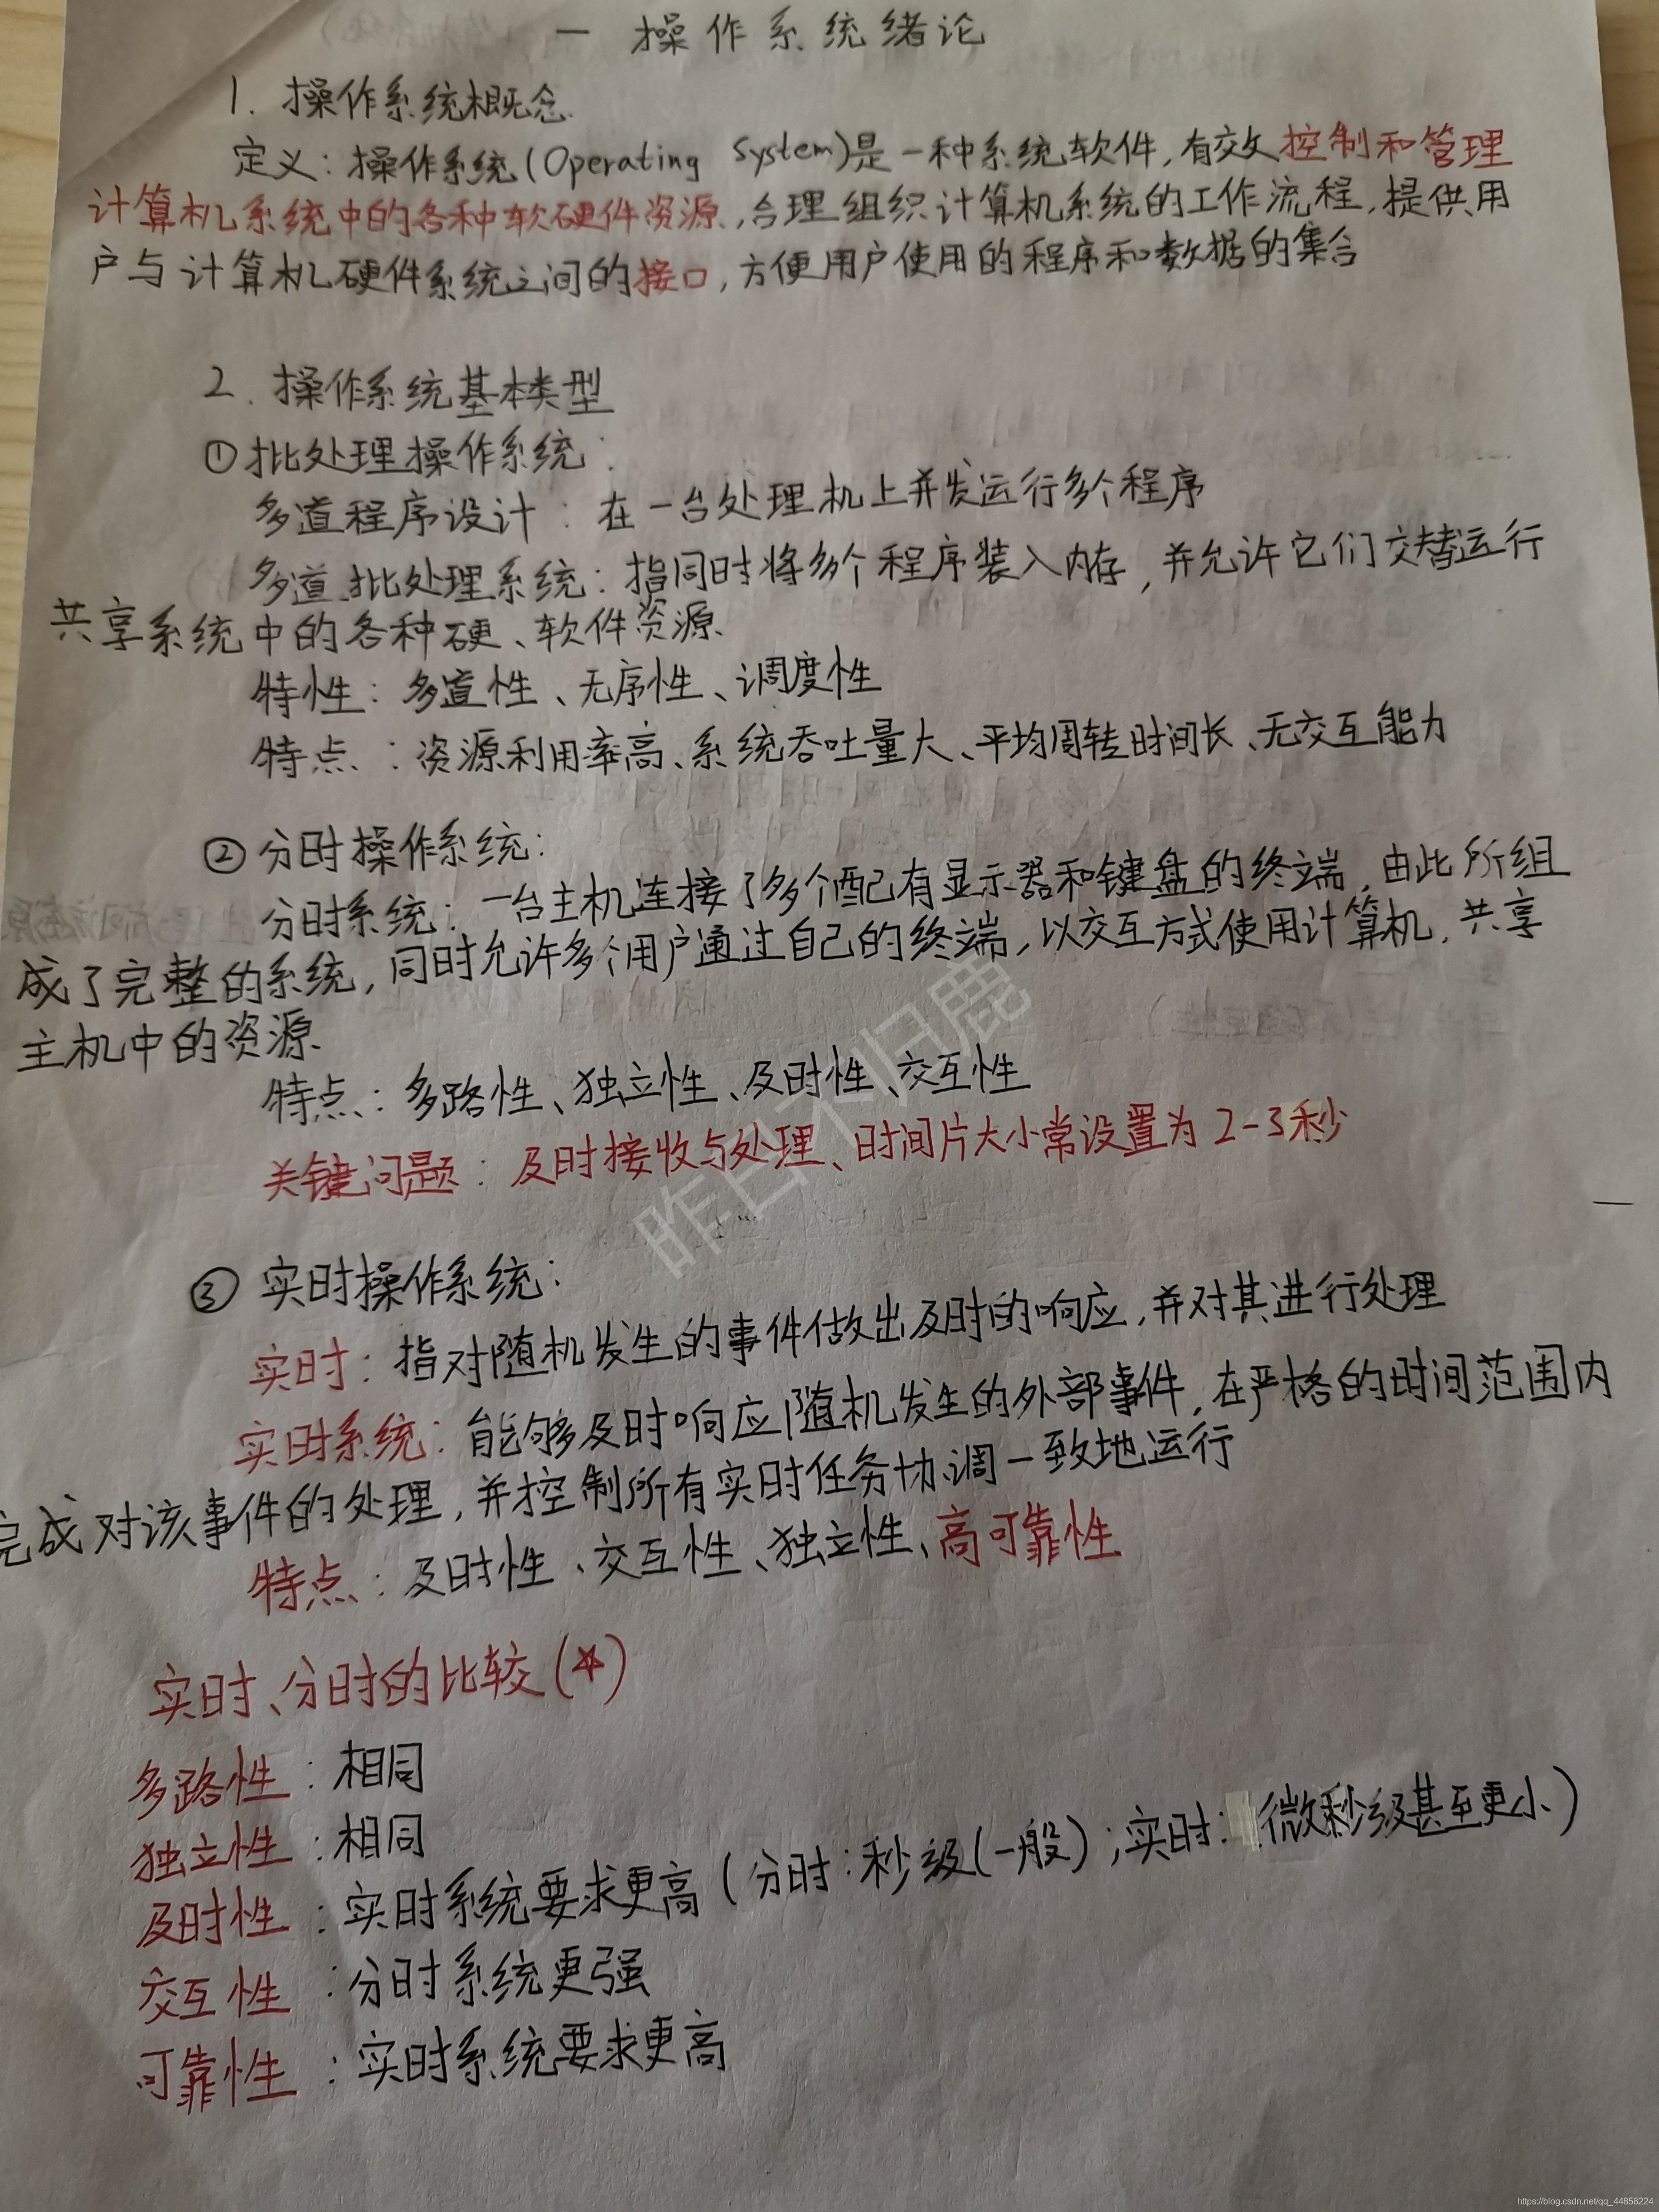 一 操作系统绪论
1. 操作系统概念
定义：操作系统(Operating System)是一种系统软件,有效控制和管理
计算机系统中的各种软硬件资源,合理组织计算机系统的工作流程,提供用
户与计算机硬件系统之间的接口,方便用户使用的程序和数据的集合
2. 操作系统基本类型
①批处理操作系统：
多道程序设计：在一台处理机上并发运行多个程序
多道批处理系统：指同时将多个程序装入内存,并允许它们交替运行
共享系统中的各种硬、软件资源
特性：多道性、无序性、调度性
特点：资源利用率高、系统吞吐量大、平均周转时间长、无交互能力
②分时操作系统：
分时系统：一台主机连接了多个配有显示器和键盘的终端,由此所组
成了完整的系统,同时允许多个用户通过自己的终端,以交互方式使用计算机,共享
主机中的资源
特点：多路性、独立性、及时性、交互性
关键问题：及时接收与处理、时间片大小常设置为2-3秒
昨日不归鹿
③实时操作系统：
实时：指对随机发生的事件做出及时的响应,并对其进行处理
实时系统：能够及时响应随机发生的外部事件,在严格的时间范围内
完成对该事件的处理,并控制所有实时任务协调一致地运行
特点：及时性、交互性、独立性、高可靠性
实时、分时的比较(☆)
多路性：相同
独立性：相同
及时性：实时系统要求更高(分时：秒级(一般)；实时：微秒级甚至更小)
交互性：分时系统更强
可靠性：实时系统要求更高
https://blog.csdn.net/qq_44858224